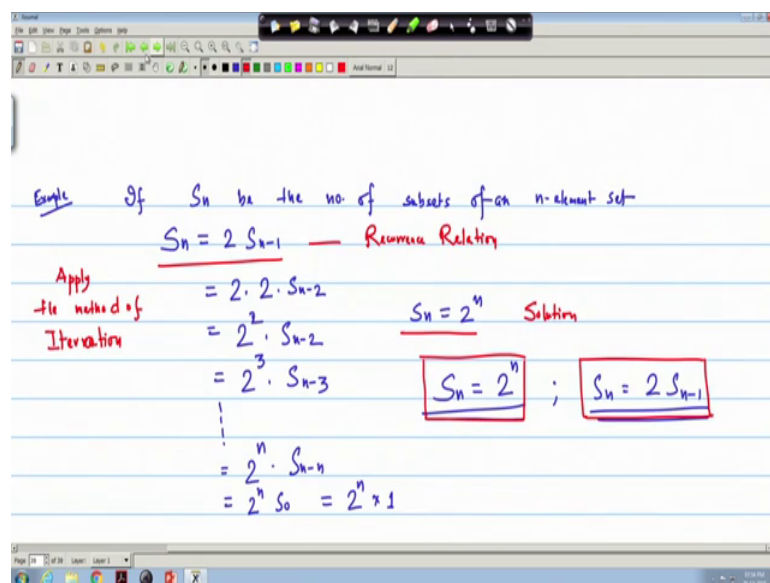 Journal
File Edit View Page Tools Options Help
Arial Normal 12
Example If Sn be the no. of subsets of an n-element set
Sn = 2 Sn-1 — Recurrence Relation
Apply
the method of
Iteration
= 2. 2. Sn-2
= 2² . Sn-2
= 2³ . Sn-3
= 2ⁿ . Sn-n
= 2ⁿ S0 = 2ⁿ × 1
Sn = 2ⁿ Solution
Sn = 2ⁿ ; Sn = 2 Sn-1
Page of 38 Layer: Layer 1